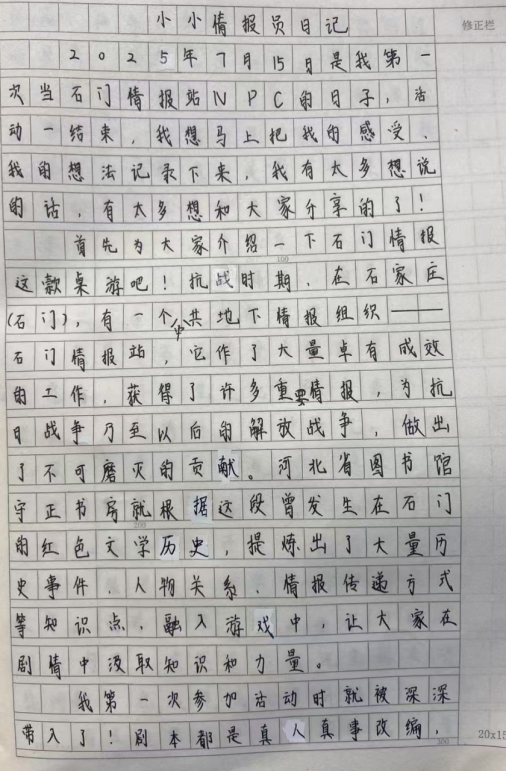 小小情报员日记
修正栏
2025年7月15日是我第一
次当石门情报站NPC的日子,活
动一结束,我想马上把我的感受、
我的想法记录下来,我有太多想说
的话,有太多想和大家分享的了!
首先为大家介绍一下石门情报
100
这款桌游吧!抗战时期,在石家庄
(石门),有一个中共地下情报组织——
石门情报站,它作了大量卓有成效
的工作,获得了许多重要情报,为抗
日战争乃至以后的解放战争,做出
了不可磨灭的贡献。河北省图书馆
守正书房就根据这段曾发生在石门
200
的红色文学历史,提炼出了大量历
史事件、人物关系、情报传递方式
等知识点,融入游戏中,让大家在
剧情中汲取知识和力量。
我第一次参加活动时就被深深
带入了!剧本都是真人真事改编,
300
20x15